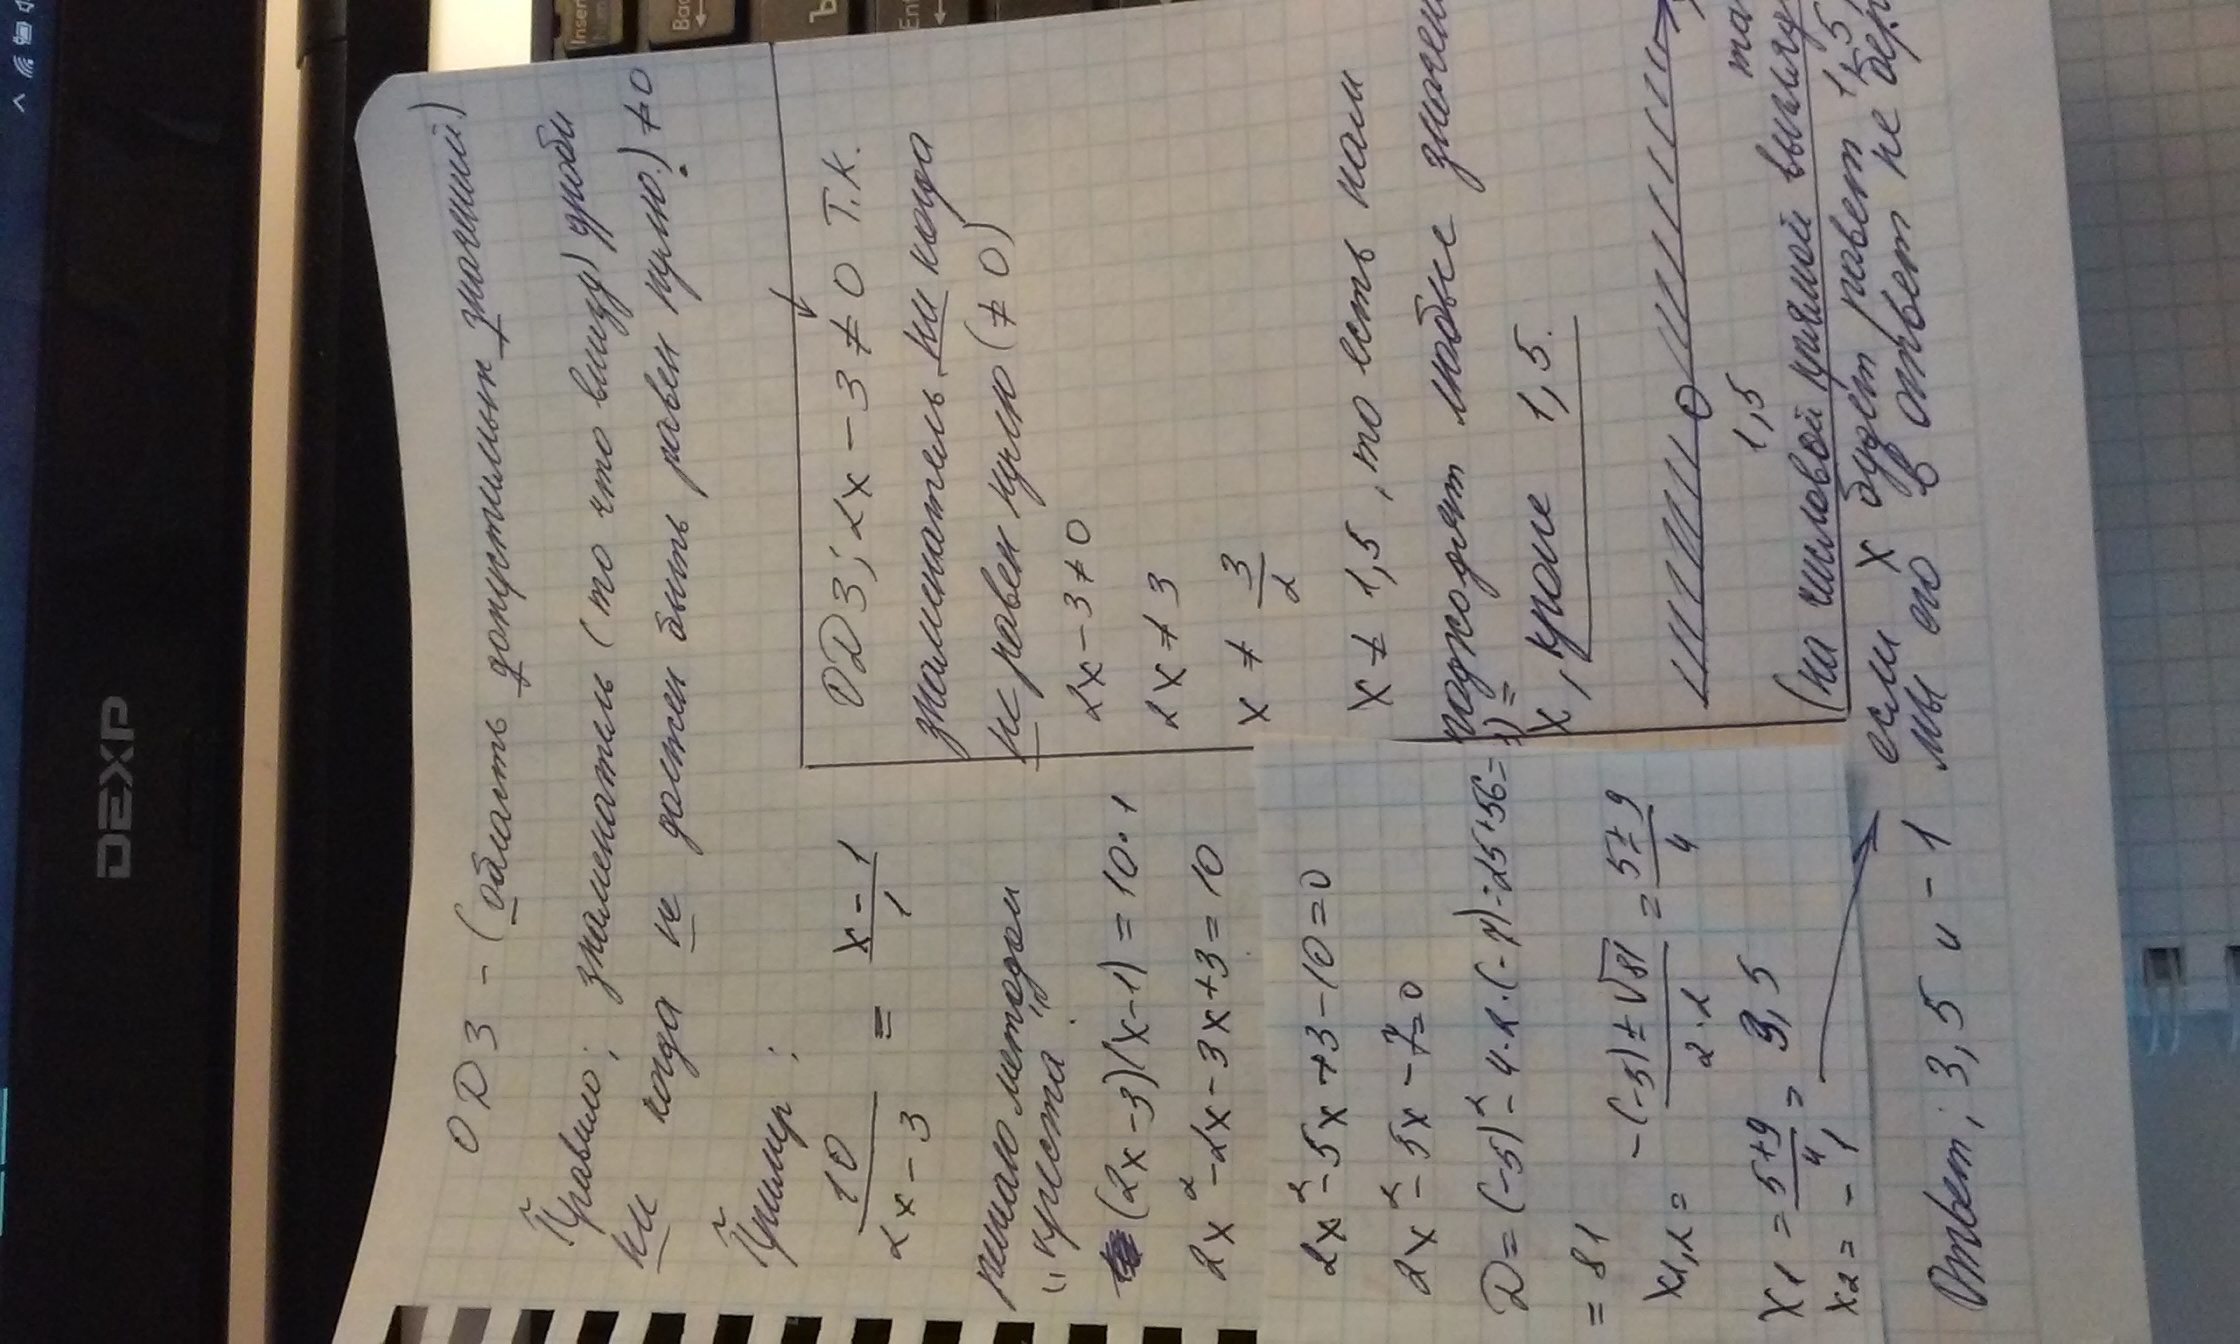 DEXP
ОДЗ - (область допустимых значений)
Правило: знаменатель (то что внизу) дроби
ни когда не должен быть равен нулю.) ≠ 0
Пример:
10 / 2x - 3 = x - 1 / 1
методом
"креста"
(2x - 3)(x - 1) = 10 · 1
2x² - 2x - 3x + 3 = 10
2x² - 5x + 3 - 10 = 0
2x² - 5x - 7 = 0
D = (-5)² - 4 · 2 · (-7) = 25 + 56 =
= 81
x1,2 = -(-5) ± √81 / 2·2 = 5 ± 9 / 4
x1 = 5+9 / 4 = 3,5
x2 = -1
Ответ: 3,5 и -1
ОДЗ: 2x - 3 ≠ 0 т.к.
знаменатель ни когда
не равен нулю (≠ 0)
2x - 3 ≠ 0
2x ≠ 3
x ≠ 3 / 2
x ≠ 1,5, то есть нам
подходят любые
x, кроме 1,5.
1,5
(на числовой прямой
если x будет равен 1,5
мы его в ответ не